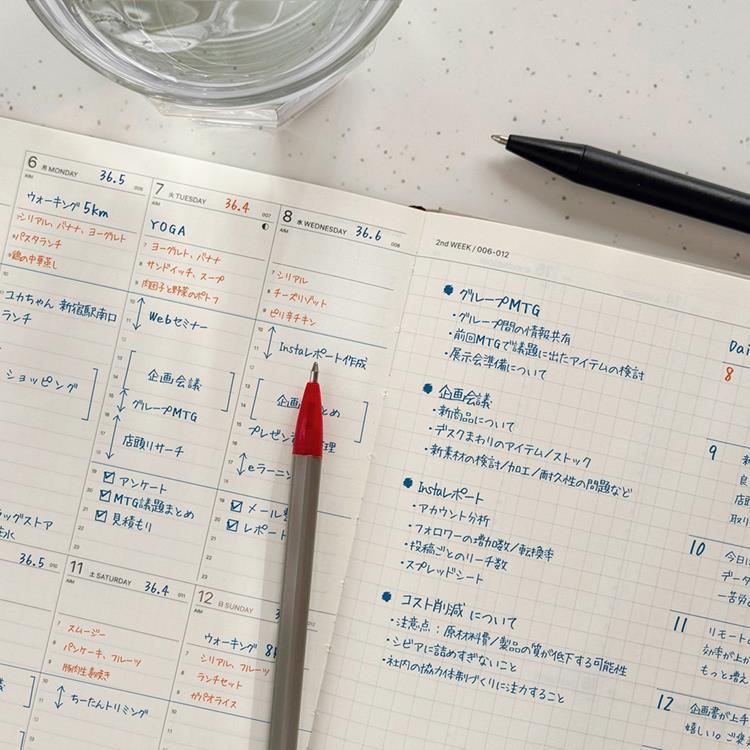 6 月 MONDAY 36.5 006
AIM
ウォーキング 5km
・シリアル、バナナ、ヨーグルト
・パスタランチ
・鶏の中華蒸し
ユカちゃん 新宿駅南口
ランチ
ショッピング
7 火 TUESDAY 36.4 007
AIM
YOGA
ヨーグルト、バナナ
サンドイッチ、スープ
肉団子と野菜のポトフ
Webセミナー
企画会議
グループMTG
店頭リサーチ
アンケート
MTG議題まとめ
見積もり
8 水 WEDNESDAY 36.6 008
AIM
シリアル
チーズリゾット
ピリ辛チキン
Instaレポート作成
企画
とめ
プレゼン
理
eラーニン
メール
レポート
36.5 010
11 土 SATURDAY 36.4 011
AIM
スムージー
パンケーキ、フルーツ
豚肉生姜焼き
ちーたんトリミング
12 日 SUNDAY
AIM
ウォーキング 8
シリアル、フルーツ
ランチセット
ガパオライス
2nd WEEK / 006-012
グループMTG
・グループ間の情報共有
・前回MTGで議題に出たアイテムの検討
・展示会準備について
企画会議
・新商品について
・デスクまわりのアイテム/ストック
・新素材の検討/加工/耐久性の問題など
Instaレポート
・アカウント分析
・フォロワーの増加数/転換率
・投稿ごとのリーチ数
・スプレッドシート
コスト削減 について
・注意点：原材料費/製品の質が低下する可能性
・シビアに詰めすぎないこと
・社内の協力体制づくりに注力すること
Dai
8
9
良
店頭
取り
10 今日に
データ
一苦労
11 リモート
効率が上が
もっと増え
12 企画書が上手
嬉しい。ご褒